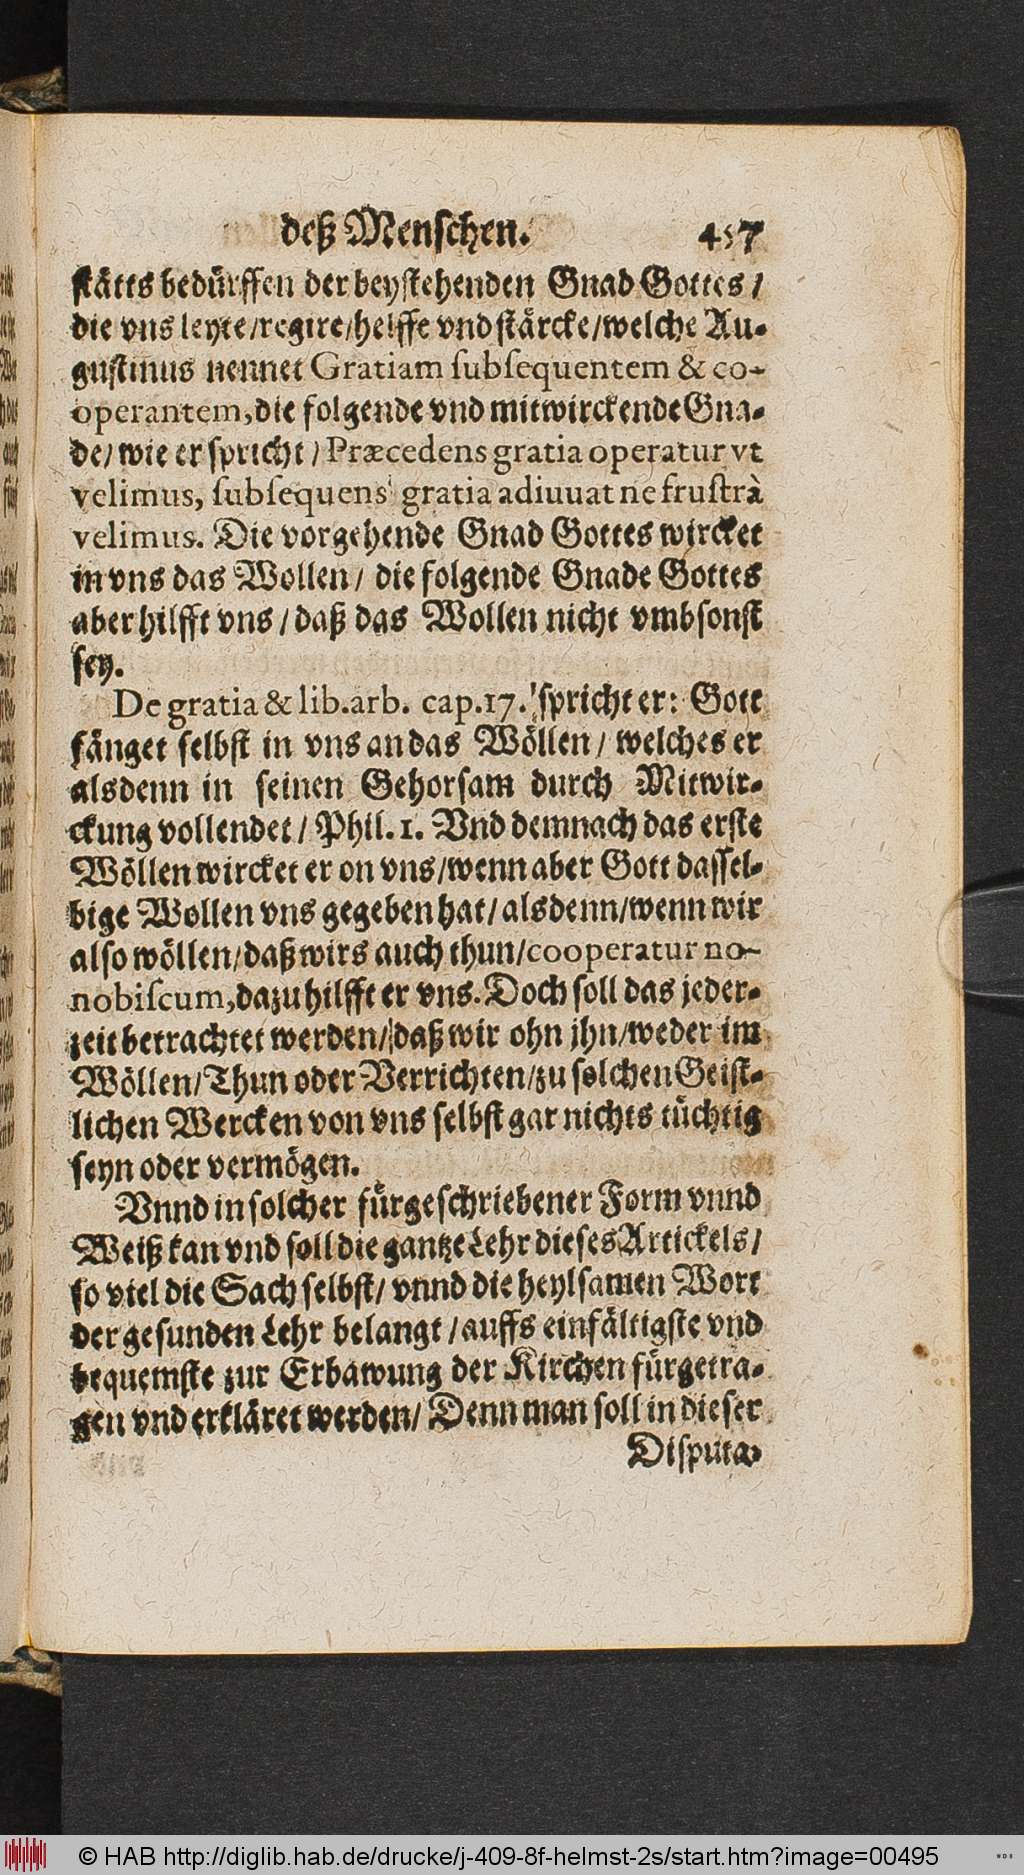 deß Menschen. 457
stätts bedürffen der beystehenden Gnad Gottes /
die vns leyte / regire / helffe vnd stärcke / welche Au-
gustinus nennet Gratiam subsequentem & co-
operantem, die folgende vnd mitwirckende Gna-
de / wie er spricht / Præcedens gratia operatur vt
velimus, subsequens gratia adiuuat ne frustrà
velimus. Die vorgehende Gnad Gottes wircket
in vns das Wollen / die folgende Gnade Gottes
aber hilfft vns / daß das Wollen nicht vmbsonst
sey.
De gratia & lib. arb. cap. 17. spricht er: Gott
fänget selbst in vns an das Wöllen / welches er
alsdenn in seinen Gehorsam durch Mitwir-
ckung vollendet / Phil. 1. Vnd demnach das erste
Wöllen wircket er on vns / wenn aber Gott dassel-
bige Wollen vns gegeben hat / alsdenn / wenn wir
also wöllen / daß wirs auch thun / cooperatur no-
nobiscum, dazu hilfft er vns. Doch soll das jeder-
zeit betrachtet werden / daß wir ohn jhn / weder im
Wöllen / Thun oder Verrichten / zu solchen Geist-
lichen Wercken von vns selbst gar nichts tüchtig
seyn oder vermögen.
Vnnd in solcher fürgeschriebener Form vnnd
Weiß kan vnd soll die gantze Lehr dieses Artickels /
so viel die Sach selbst / vnnd die heylsamen Wort
der gesunden Lehr belangt / auffs einfältigste vnd
bequemste zur Erbawung der Kirchen fürgetra-
gen vnd erkläret werden / Denn man soll in dieser
Disputa-
© HAB http://diglib.hab.de/drucke/j-409-8f-helmst-2s/start.htm?image=00495